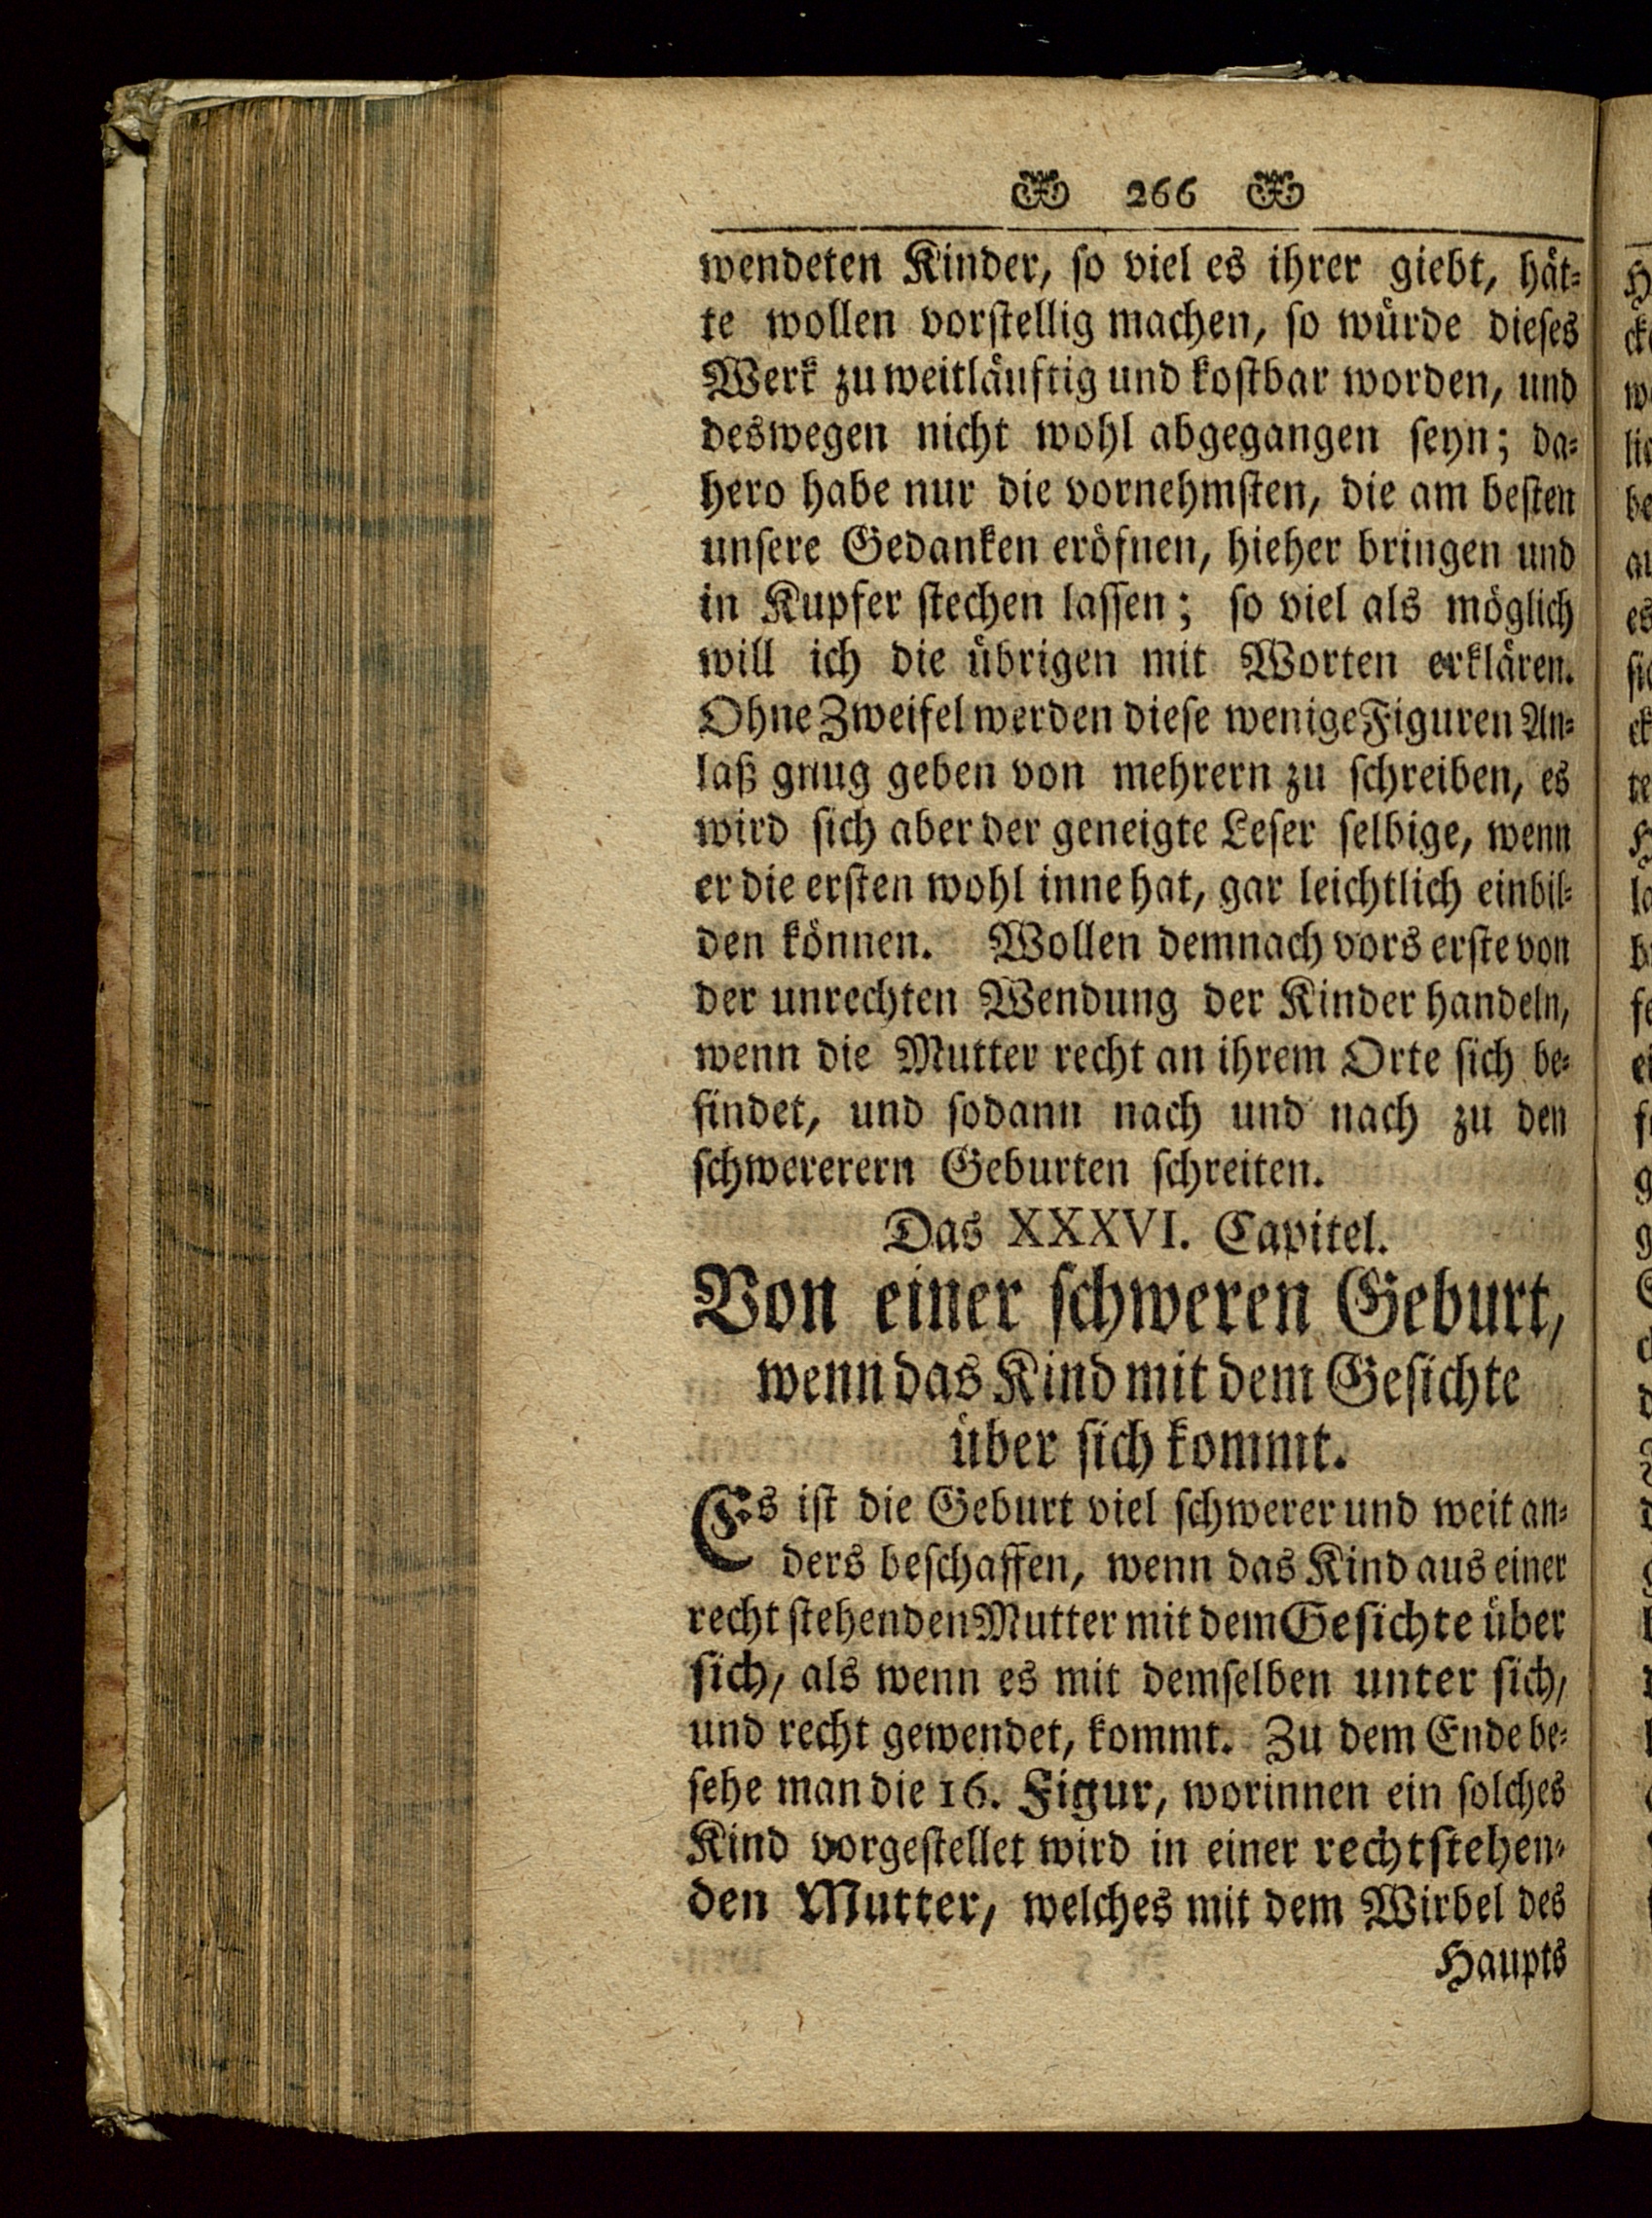 266
wendeten Kinder, so viel es ihrer giebt, hät-
te wollen vorstellig machen, so würde dieses
Werk zu weitläuftig und kostbar worden, und
deswegen nicht wohl abgegangen seyn; da-
hero habe nur die vornehmsten, die am besten
unsere Gedanken eröfnen, hieher bringen und
in Kupfer stechen lassen; so viel als möglich
will ich die übrigen mit Worten erklären.
Ohne Zweifel werden diese wenige Figuren An-
laß gnug geben von mehrern zu schreiben, es
wird sich aber der geneigte Leser selbige, wenn
er die ersten wohl inne hat, gar leichtlich einbil-
den können. Wollen demnach vors erste von
der unrechten Wendung der Kinder handeln,
wenn die Mutter recht an ihrem Orte sich be-
findet, und sodann nach und nach zu den
schwererern Geburten schreiten.
Das XXXVI. Capitel.
Von einer schweren Geburt,
wenn das Kind mit dem Gesichte
über sich kommt.
Es ist die Geburt viel schwerer und weit an-
ders beschaffen, wenn das Kind aus einer
recht stehenden Mutter mit dem Gesichte über
sich, als wenn es mit demselben unter sich,
und recht gewendet, kommt. Zu dem Ende be-
sehe man die 16. Figur, worinnen ein solches
Kind vorgestellet wird in einer rechtstehen-
den Mutter, welches mit dem Wirbel des
Haupts